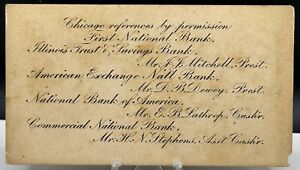 Chicago references by permission
First National Bank,
Illinois Trust & Savings Bank,
Mr. J. J. Mitchell, Prest.
American Exchange Nat'l Bank,
Mr. D. B. Dewey, Prest.
National Bank of America,
Mr. E. B. Lathrop, Cashr.
Commercial National Bank,
Mr. H. N. Stephens, Asst. Cashr.